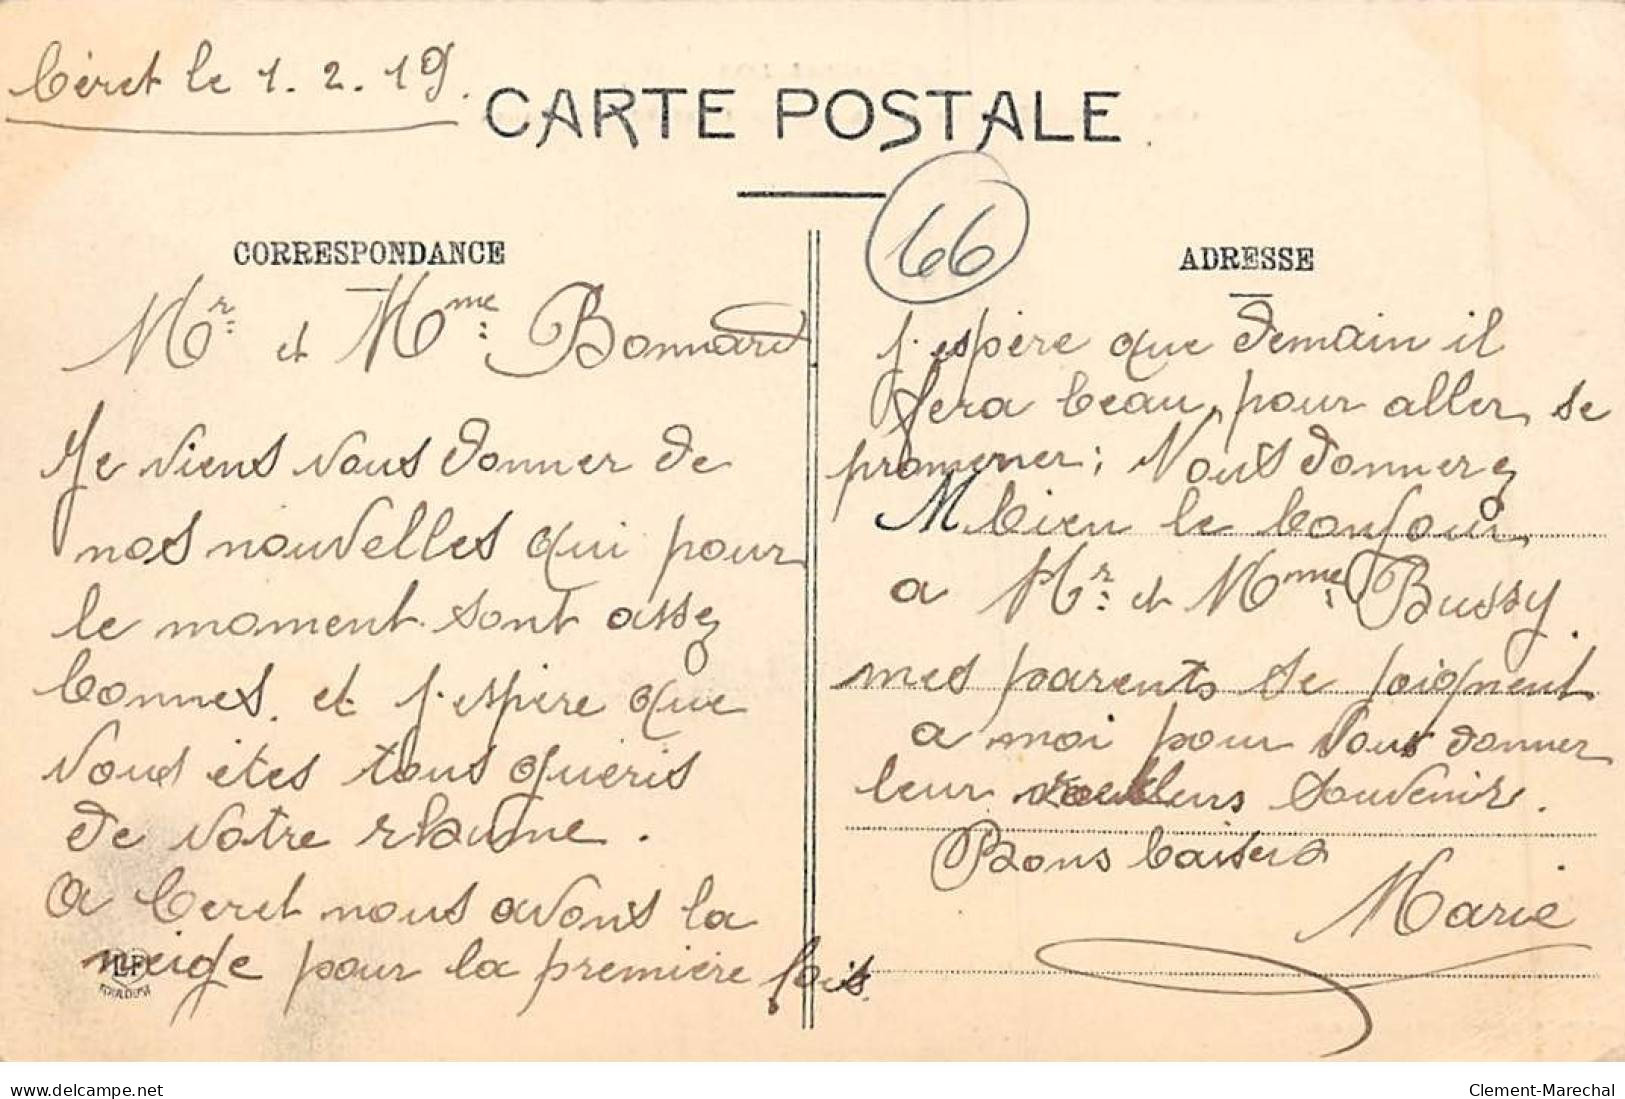 Céret le 1.2.19.
CARTE POSTALE
66
CORRESPONDANCE
Mr: et Mme: Bonnard
Je viens vous donner de
nos nouvelles qui pour
le moment sont assez
bonnes. et j'espère que
vous êtes tous guéris
de votre rhume.
a Ceret nous avons la
neige pour la première fois.
LF
TOULOUSE
ADRESSE
j'espère que demain il
fera beau, pour aller se
promener; Vous donnerez
M bien le bonjour
a Mr: et Mme: Bussy.
mes parents se joignent
a moi pour vous donner
leur meilleurs souvenirs.
Bons baisers
Marie
delcampe.net
Clement-Marechal